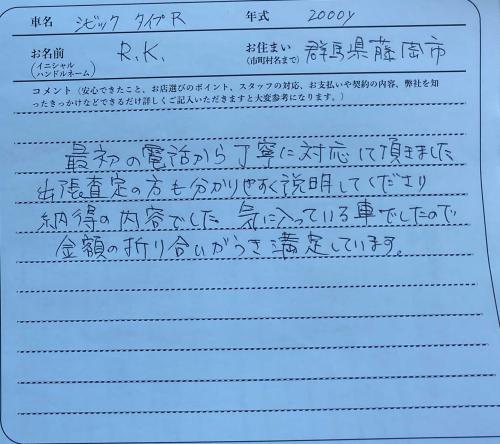 車名 シビック タイプR 年式 2000y
お名前 R.K. お住まい 群馬県藤岡市
(イニシャル
ハンドルネーム) (市町村名まで)
コメント（安心できたこと、お店選びのポイント、スタッフの対応、お支払いや契約の内容、弊社を知
ったきっかけなどできるだけ詳しくご記入いただきますと大変参考になります。）
最初の電話から丁寧に対応して頂きました
出張査定の方も分かりやすく説明してくださり
納得の内容でした 気に入っている車でしたので
金額の折り合いがつき満足しています。